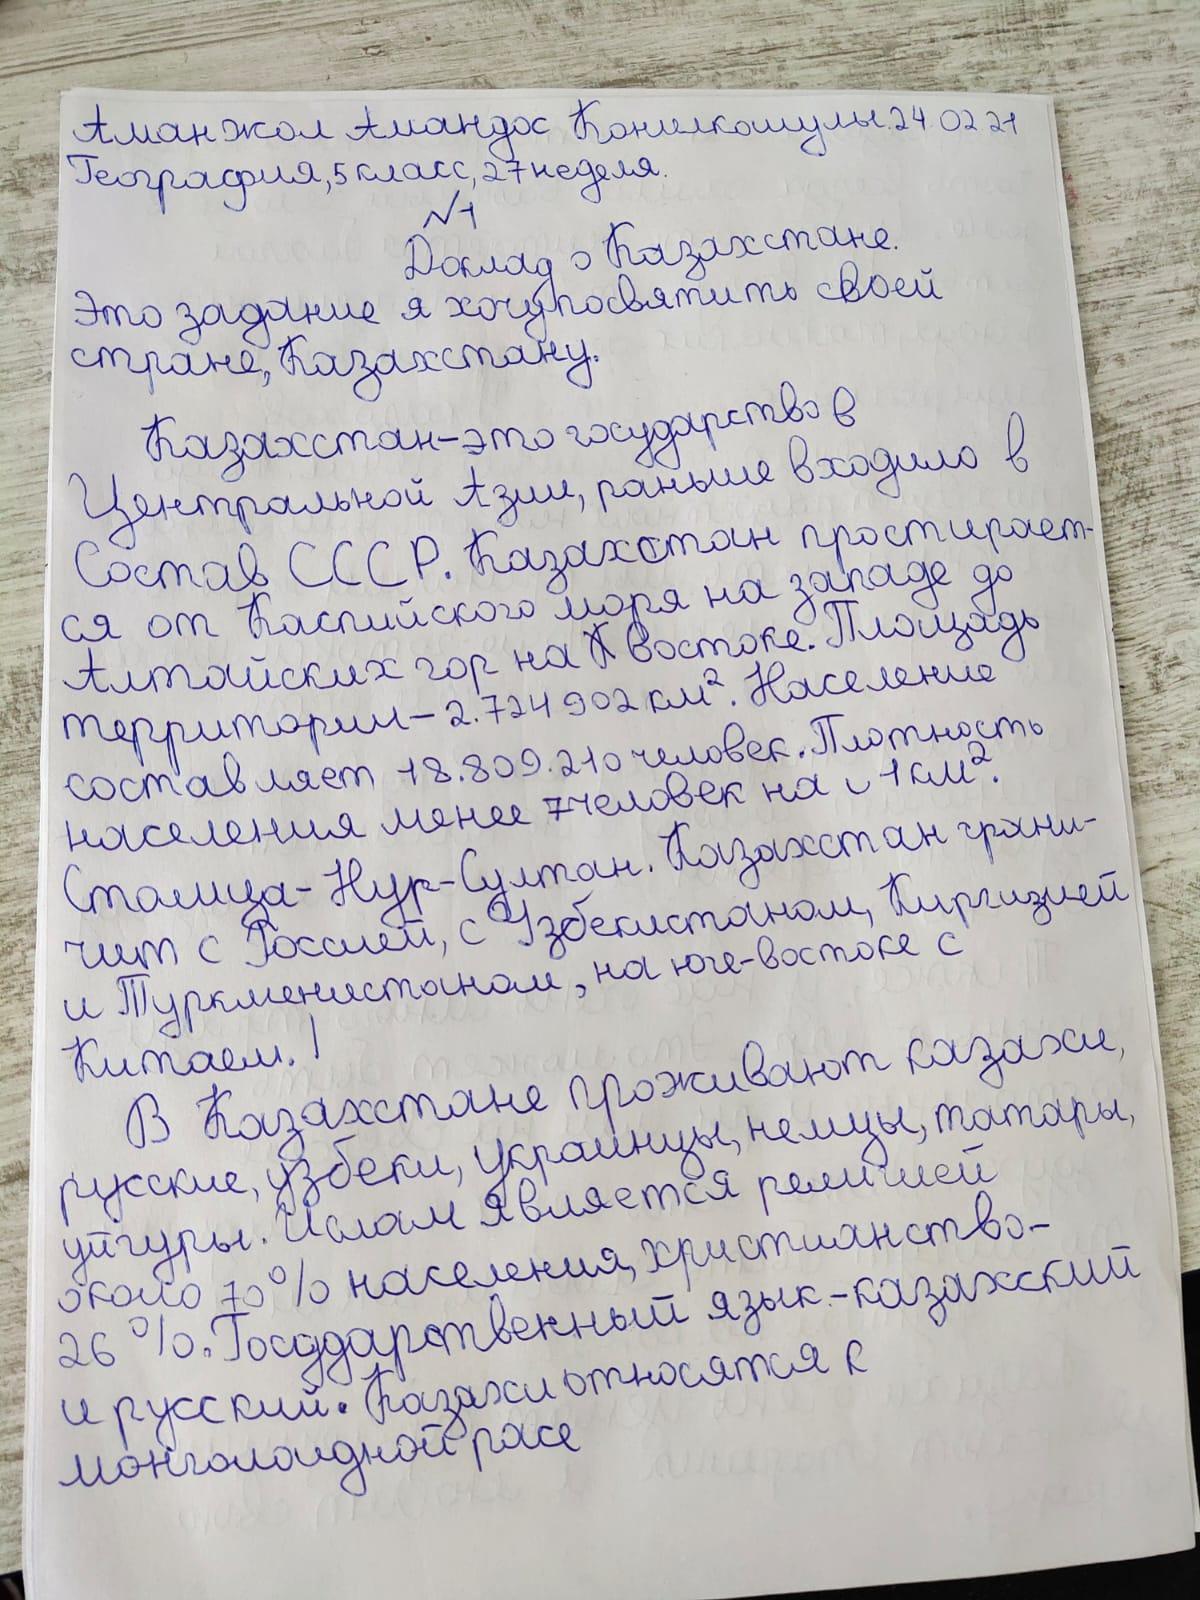 Аманжол Амандос Конилкошулы.24.02 21
География, 5 класс, 27 неделя.
№1
Доклад о Казахстане.
Это задание я хочу посвятить своей
стране, Казахстану.
Казахстан-это государство в
Центральной Азии, раньше входило в
Состав СССР. Казахстан простирает-
ся от Каспийского моря на западе до
Алтайских гор на востоке. Площадь
территории-2.724902км². Население
составляет 18.809.210 человек. Плотность
населения менее 7человек на 1км².
Столица-Нур-Султан. Казахстан грани-
чит с Россией, с Узбекистаном, Киргизией
и Туркменистаном, на юге-востоке с
Китаем.
В Казахстане проживают казахи,
русские, узбеки, украинцы, немцы, татары,
уйгуры. Ислам является религией
около 70% населения, христианство-
26 %. Госудdарственный язык.-казахский
и русский. Казахи относятся к
монголоидной расе